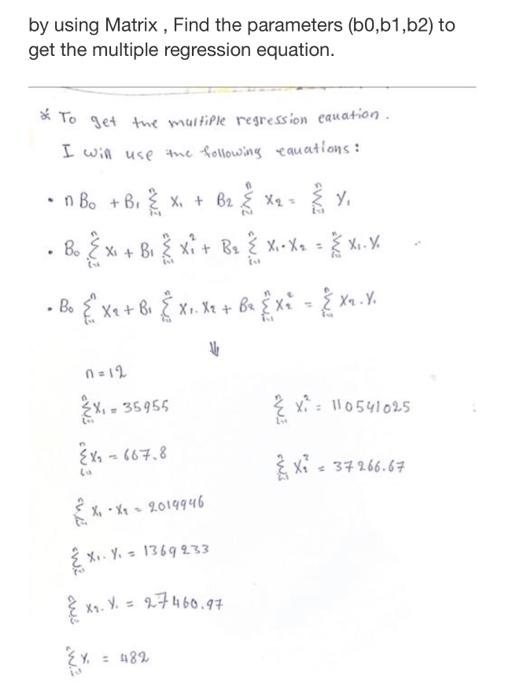 by using Matrix , Find the parameters (b0,b1,b2) to
get the multiple regression equation.
* To get the multiple regression equation.
I will use the following equations:
• n B₀ + B₁ Σⁿᵢ₌₁ X₁ + B₂ Σⁿᵢ₌₁ X₂ = Σⁿᵢ₌₁ Yᵢ
• B₀ Σⁿᵢ₌₁ X₁ + B₁ Σⁿᵢ₌₁ X₁² + B₂ Σⁿᵢ₌₁ X₁·X₂ = Σⁿᵢ₌₁ X₁·Yᵢ
• B₀ Σⁿᵢ₌₁ X₂ + B₁ Σⁿᵢ₌₁ X₁·X₂ + B₂ Σⁿᵢ₌₁ X₂² = Σⁿᵢ₌₁ X₂·Yᵢ
⇓
n = 12
Σⁿᵢ₌₁ X₁ = 35955 Σⁿᵢ₌₁ X₁² = 110541025
Σⁿᵢ₌₁ X₂ = 667.8 Σⁿᵢ₌₁ X₂² = 37266.67
Σⁿᵢ₌₁ X₁·X₂ = 2019946
Σⁿᵢ₌₁ X₁·Yᵢ = 1369233
Σⁿᵢ₌₁ X₂·Yᵢ = 27460.97
Σⁿᵢ₌₁ Yᵢ = 482